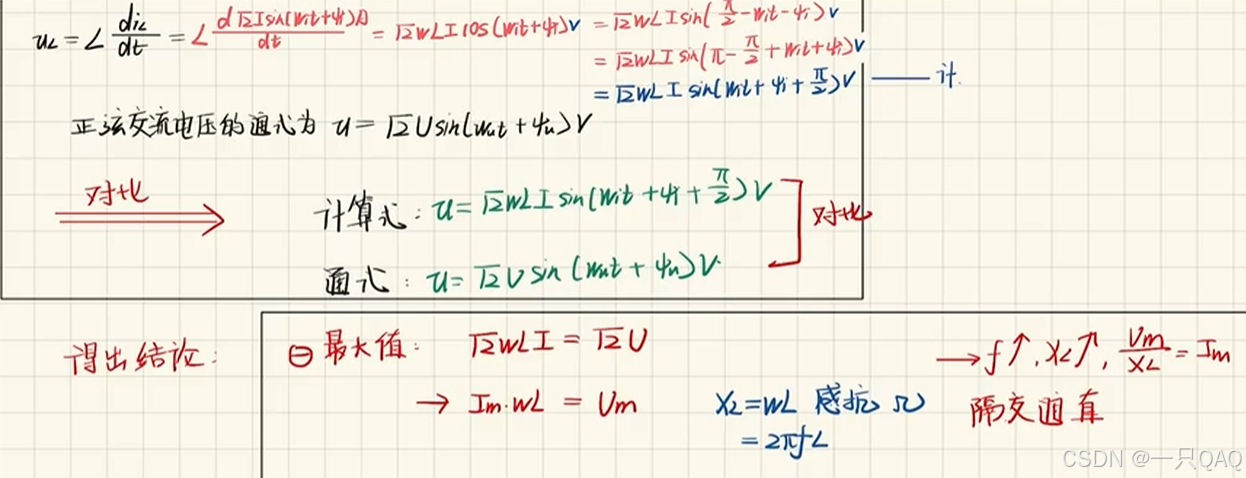 u_L = L di_L/dt = L d√2 I sin(ωit+ψi)A/dt = √2 ωL I cos(ωit+ψi)V = √2 ωL I sin(π/2 - ωit - ψi)V
= √2 ωL I sin(π - π/2 + ωit + ψi)V
= √2 ωL I sin(ωit + ψi + π/2)V —— 计.
正弦交流电压的通式为 u = √2 U sin(ωut + ψu)V
对比
计算式: u = √2 ωL I sin(ωit + ψi + π/2)V
对比
通式: u = √2 U sin(ωut + ψu)V
得出结论:
⊖ 最大值: √2 ωL I = √2 U
→ Im·ωL = Um
X_L = ωL 感抗 Ω
= 2πfL
→ f↑, X_L↑, Um/X_L = Im
隔交通直
CSDN @一只QAQ